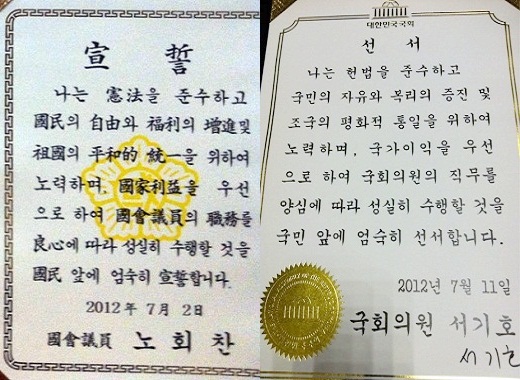 宣誓
나는 憲法을 준수하고
國民의 自由와 福利의 增進및
祖國의 平和的 統一을 위하여
노력하며, 國家利益을 우선
으로 하여 國會議員의 職務를
良心에 따라 성실히 수행할 것을
國民 앞에 엄숙히 宣誓합니다.
2012年 7月 2日
國會議員 노회찬
대한민국국회
선서
나는 헌법을 준수하고
국민의 자유와 복리의 증진 및
조국의 평화적 통일을 위하여
노력하며, 국가이익을 우선
으로 하여 국회의원의 직무를
양심에 따라 성실히 수행할 것을
국민 앞에 엄숙히 선서합니다.
2012년 7월 11일
국회의원 서기호
서기호